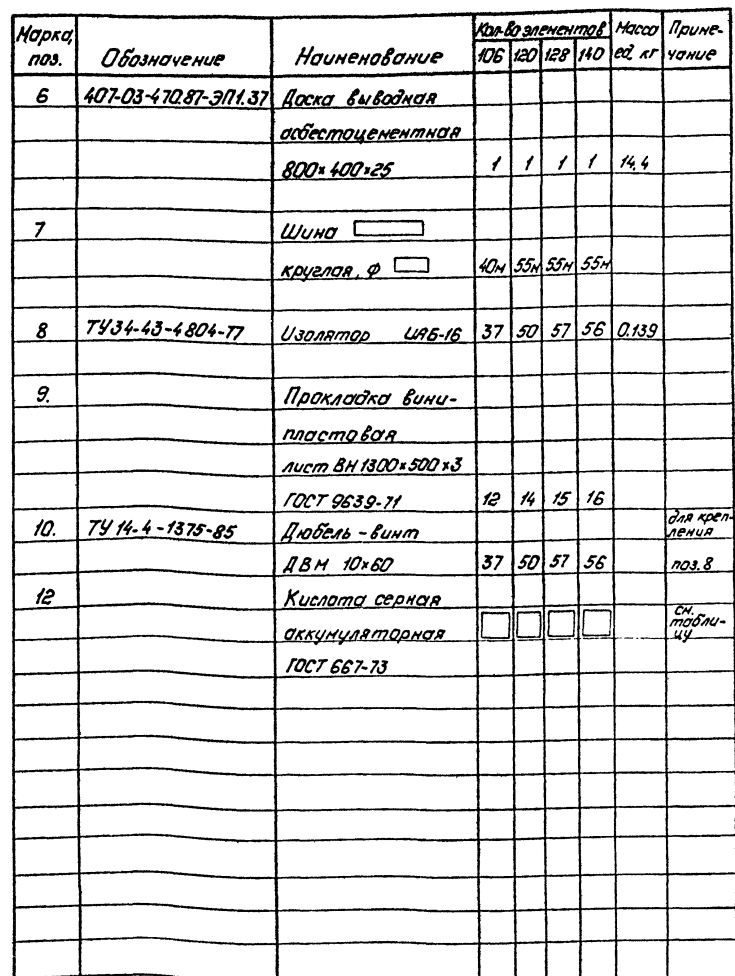 Марка, поз. Обозначение Наименование Кол-во элементов Масса ед. кг Приме-чание
106 120 128 140
6 407-03-470.87-ЭП1.37 Доска выводная
асбестоцементная
800×400×25 1 1 1 1 14,4
7 Шина
круглая, ф 40м 55м 55м 55м
8 ТУ34-43-4804-77 Изолятор ИАБ-16 37 50 57 56 0.139
9. Прокладка вини-
пластовая
лист ВН 1300×500×3
ГОСТ 9639-71 12 14 15 16
10. ТУ 14-4-1375-85 Дюбель-винт для креп-
ления
ДВМ 10×60 37 50 57 56 поз. 8
12 Кислота серная
аккумуляторная см.
табли-
цу
ГОСТ 667-73